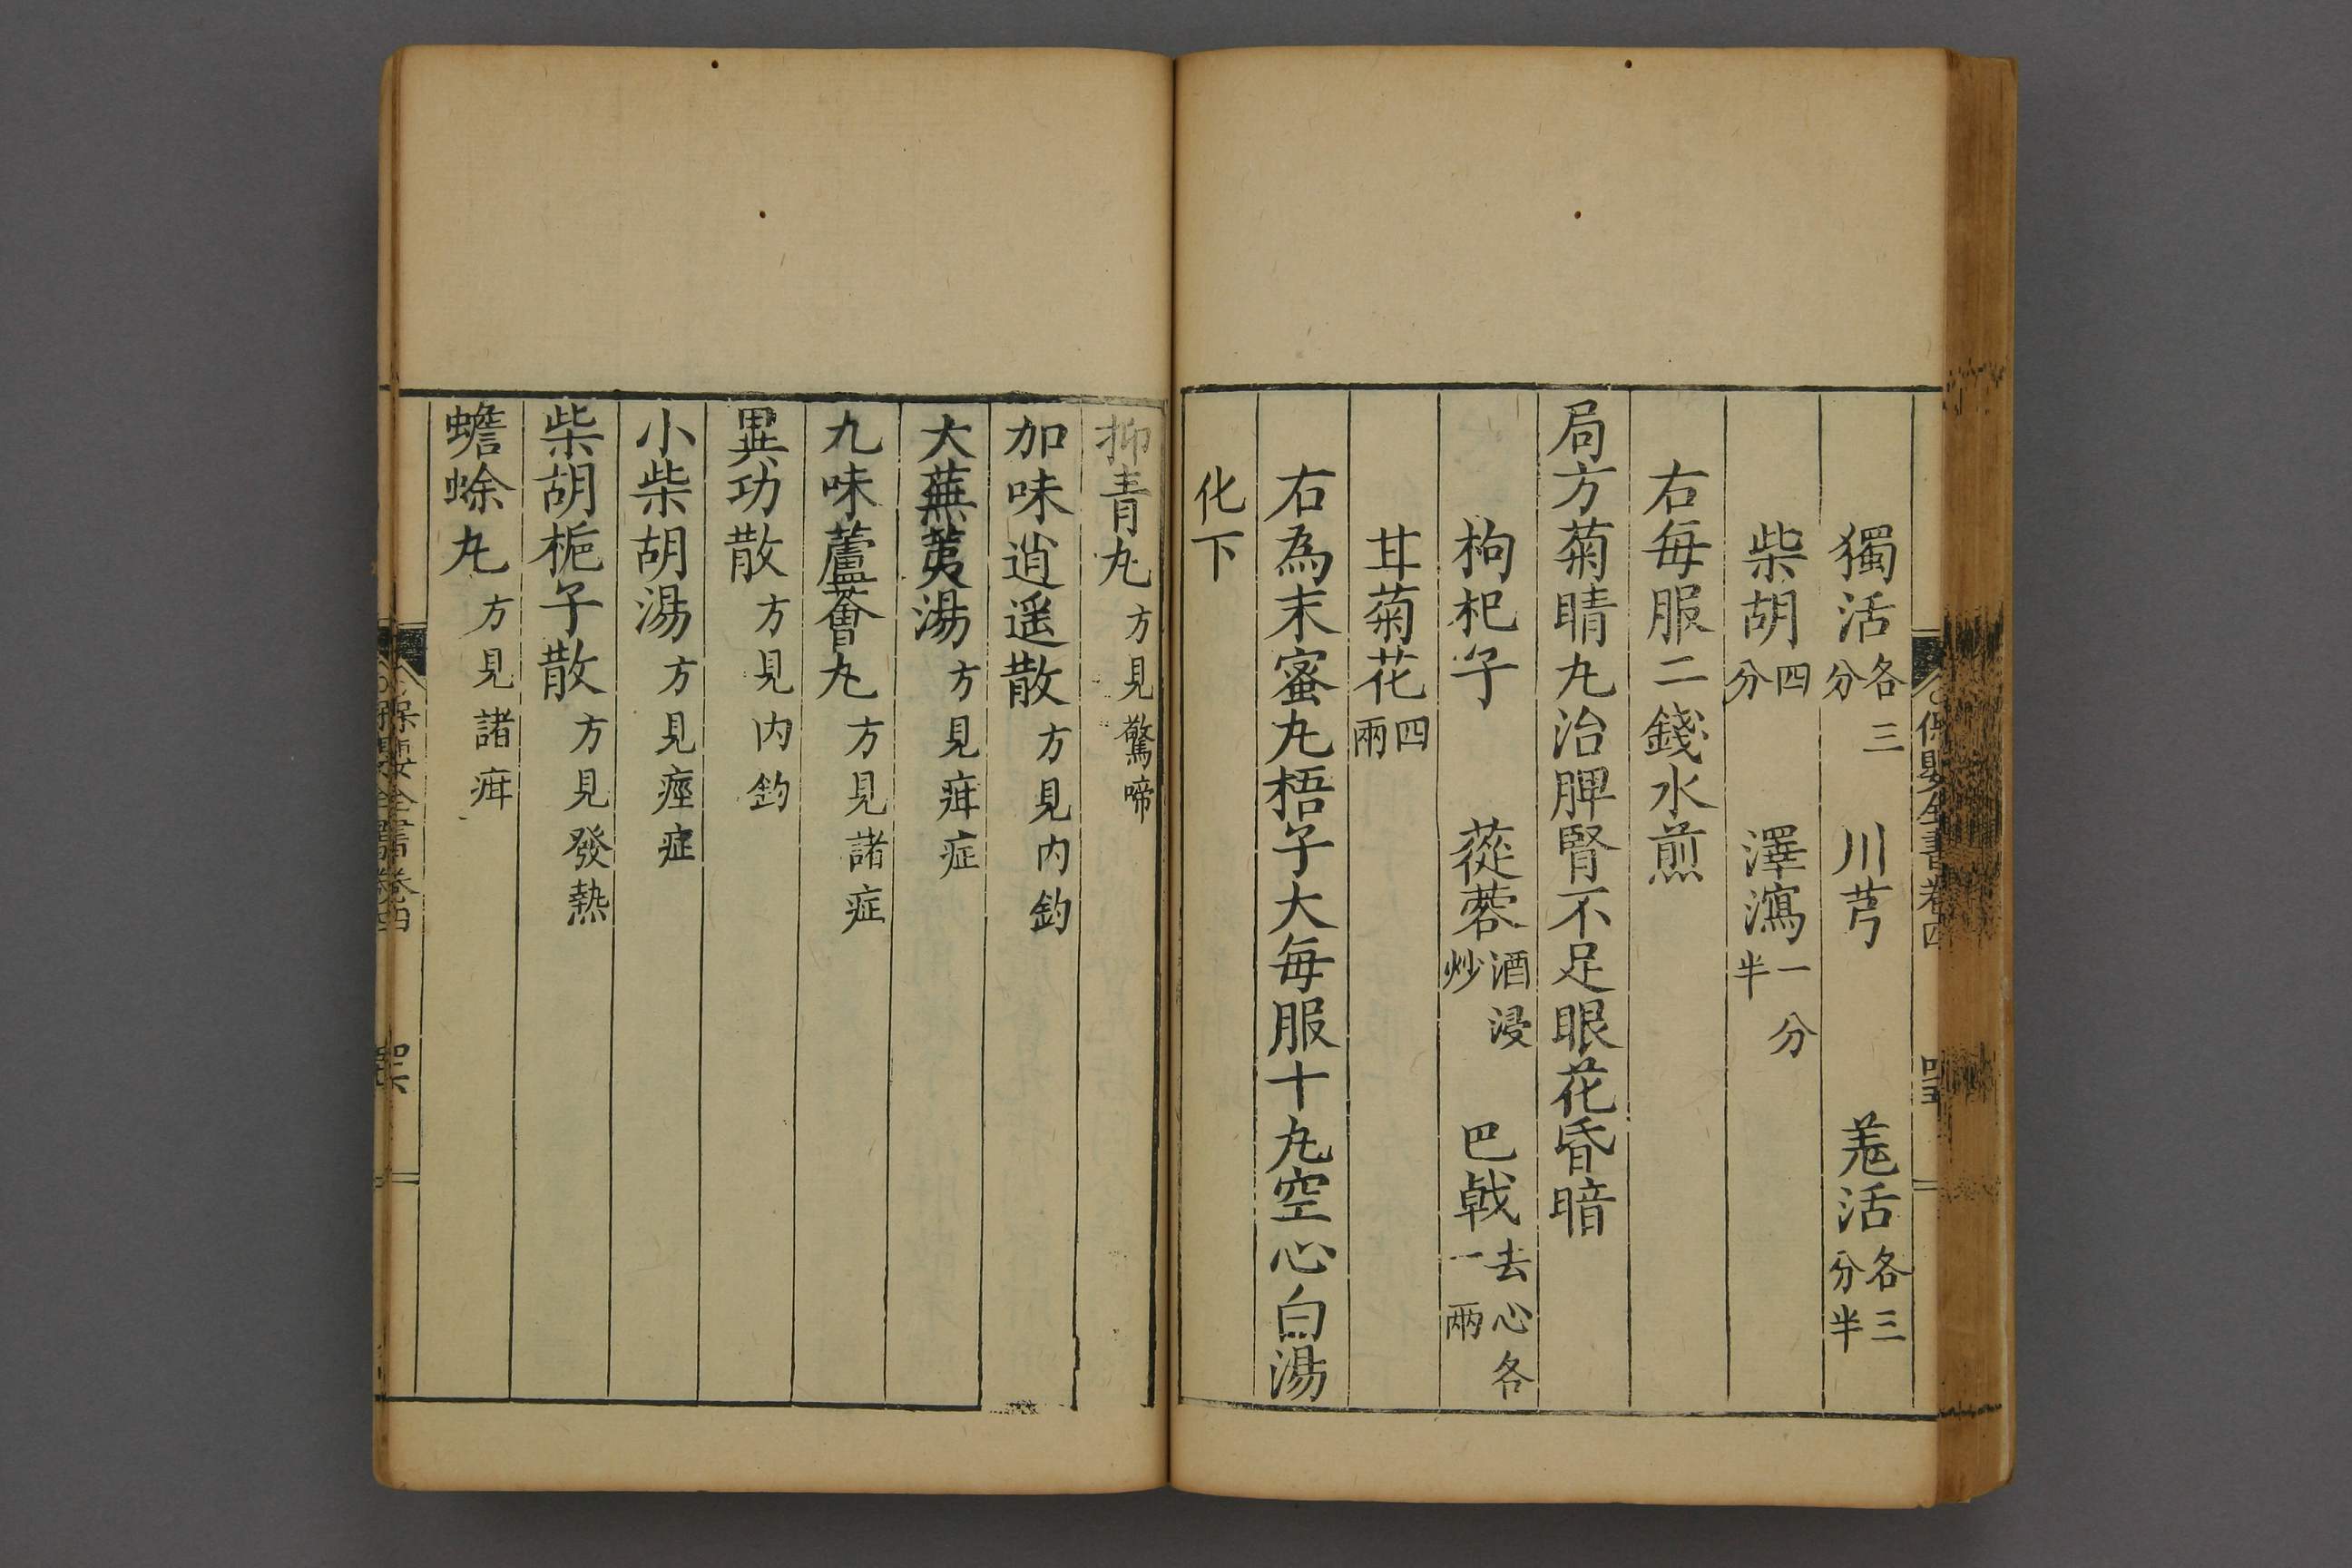 保嬰全書卷四
獨活各三分 川芎 羗活各三分半
柴胡四分 澤瀉一分半
右每服二錢水煎
局方菊睛丸治脾腎不足眼花昏暗
枸杞子 蓯蓉酒浸炒 巴戟去心各一兩
甘菊花四兩
右為末蜜丸梧子大每服十丸空心白湯
化下
抑青丸方見驚啼
加味逍遥散方見内釣
大蕪荑湯方見疳症
九味蘆薈丸方見諸症
異功散方見内釣
小柴胡湯方見痙症
柴胡梔子散方見發熱
蟾蜍丸方見諸疳
保嬰全書卷四